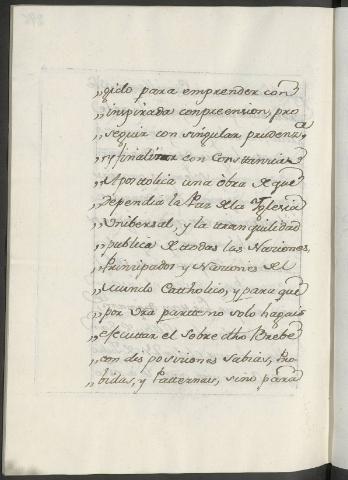 „gido para emprender con
„inspirada conpreension, pro
„seguir con singular prudenz.ᵃ
„y finalizar con Constancia
„Apostolica una obra de que
„dependia la Paz de la Iglecia
„Unibersal, y la tranquilidad
„publica de todas las Naciones,
„Principados y Naciones del
„Mundo Catthólico, y para que
„por Vra parte no solo hagais
„executtar el sobre dho Brebe
„con disposiciones Sabias, Pro
„bidas, y Patternas, sino para